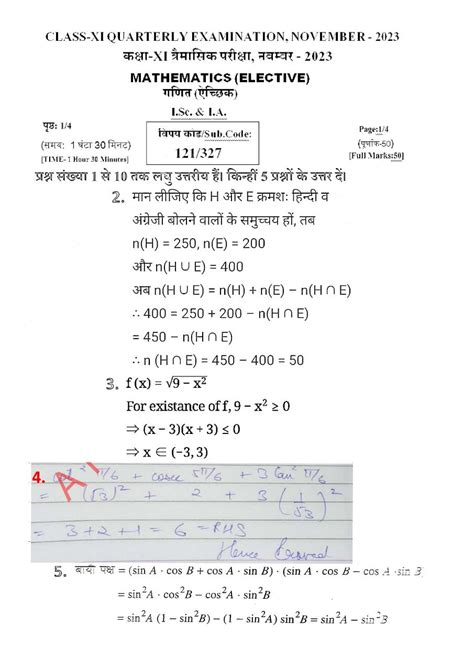 CLASS-XI QUARTERLY EXAMINATION, NOVEMBER - 2023
कक्षा-XI त्रैमासिक परीक्षा, नवम्बर - 2023
MATHEMATICS (ELECTIVE)
गणित (ऐच्छिक)
I.Sc. & I.A.
पृष्ठ: 1/4
विषय कोड/Sub.Code:
Page:1/4
(समय: 1 घंटा 30 मिनट)
121/327
(पूर्णांक-50)
[TIME- 1 Hour 30 Minutes]
[Full Marks:50]
प्रश्न संख्या 1 से 10 तक लघु उत्तरीय हैं। किन्हीं 5 प्रश्नों के उत्तर दें।
2. मान लीजिए कि H और E क्रमशः हिन्दी व
अंग्रेजी बोलने वालों के समुच्चय हों, तब
n(H) = 250, n(E) = 200
और n(H ∪ E) = 400
अब n(H ∪ E) = n(H) + n(E) - n(H ∩ E)
∴ 400 = 250 + 200 - n(H ∩ E)
= 450 - n(H ∩ E)
∴ n (H ∩ E) = 450 - 400 = 50
3. f (x) = √9 − x²
For existance of f, 9 − x² ≥ 0
⇒ (x − 3)(x + 3) ≤ 0
⇒ x ∈ (−3, 3)
4. cot² π/6 + cosec π/6 + 3 tan² π/6
= (√3)² + 2 + 3 (1/√3)²
= 3 + 2 + 1 = 6 = RHS
Hence Proved
5. बायाँ पक्ष = (sin A · cos B + cos A · sin B) · (sin A · cos B − cos A · sin B
= sin²A · cos²B − cos²A · sin²B
= sin²A (1 − sin²B) − (1 − sin²A) sin²B = sin²A − sin²B